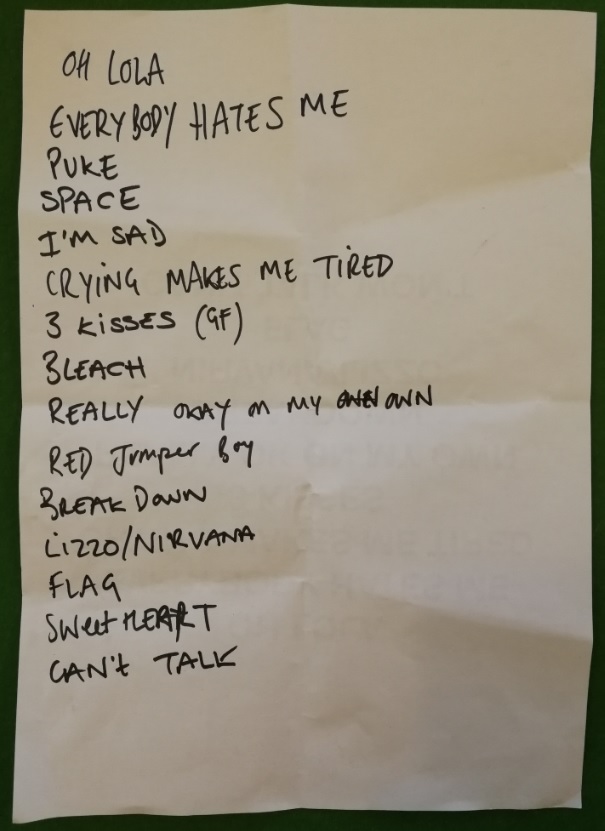 OH LOLA
EVERYBODY HATES ME
PUKE
SPACE
I'M SAD
CRYING MAKES ME TIRED
3 KISSES (GF)
BLEACH
REALLY OKAY ON MY OWN
RED Jumper Boy
BREAK DOWN
LIZZO/NIRVANA
FLAG
SWeetHEART
CAN't TALK